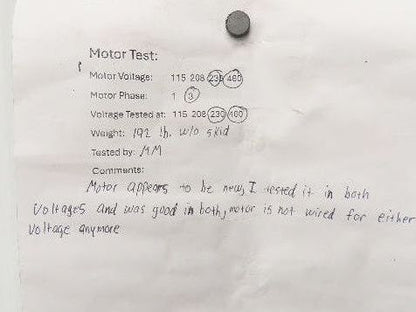 Motor Test:
Motor Voltage: 115 208 230 460
Motor Phase: 1 3
Voltage Tested at: 115 208 230 400
Weight: 192 lb. w/o skid
Tested by: MM
Comments:
Motor appears to be new, I tested it in both
voltages and was good in both, motor is not wired for either
voltage anymore